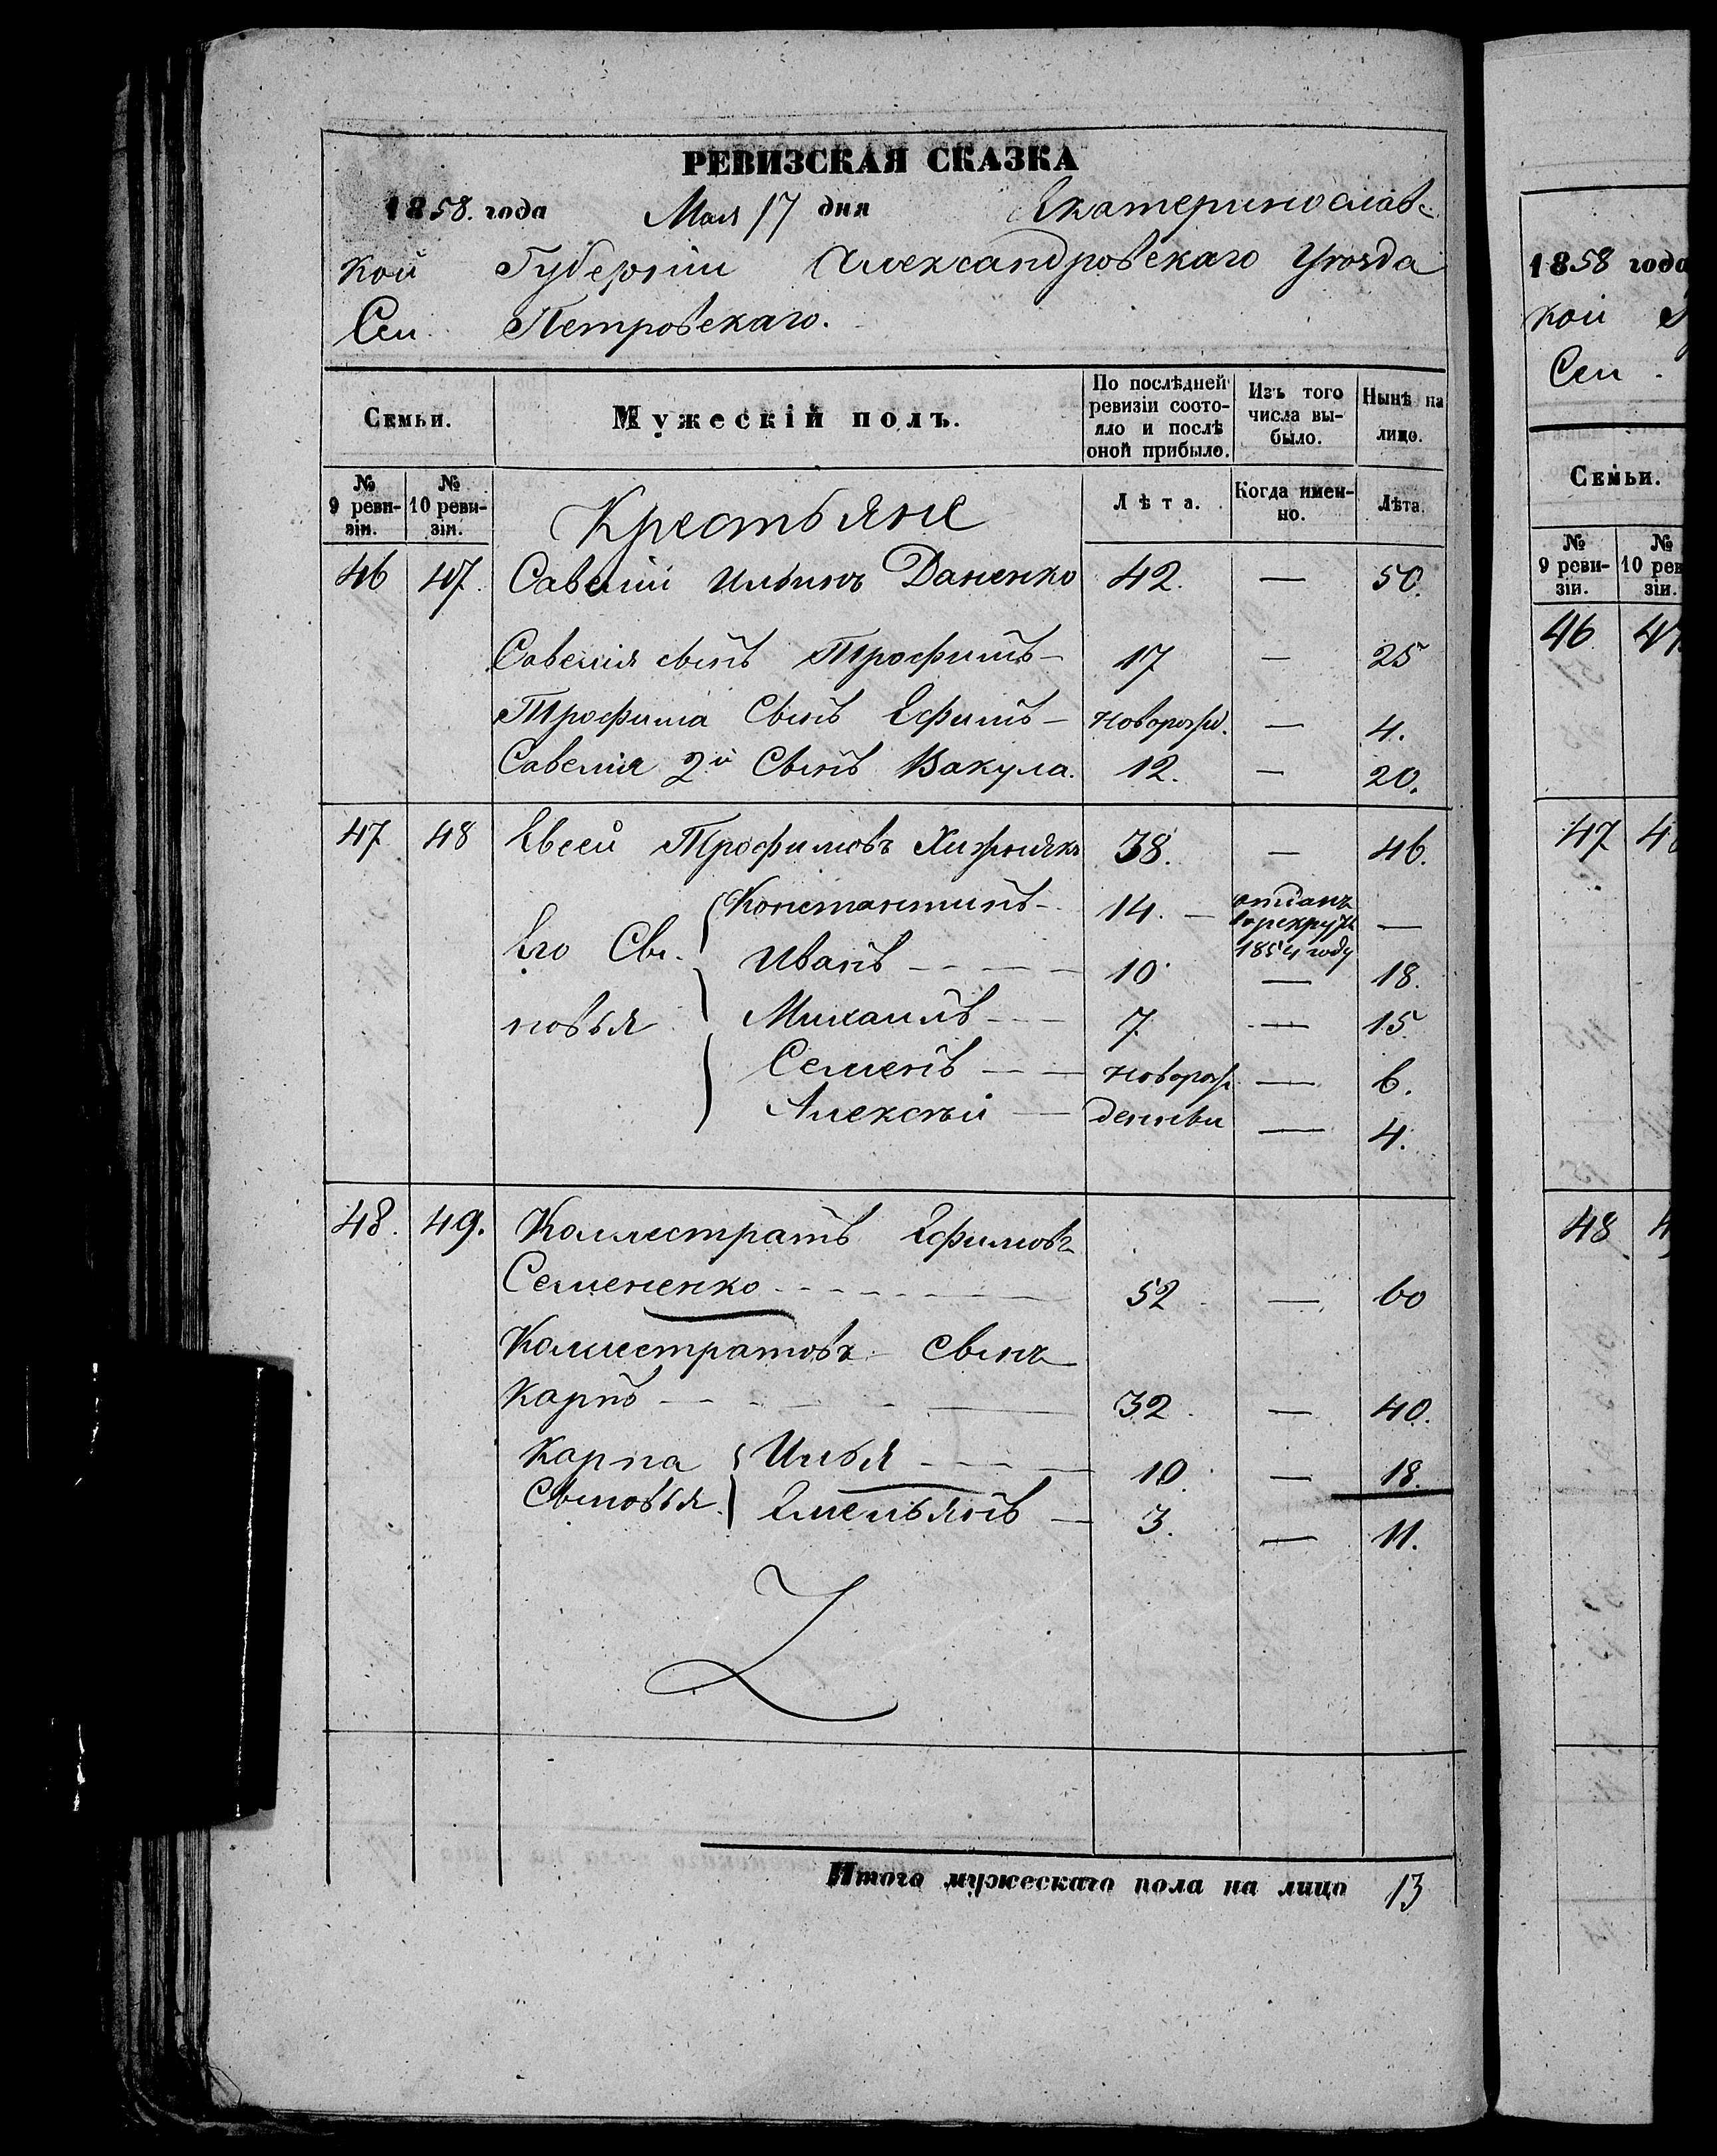 РЕВИЗСКАЯ СКАЗКА
1858. года Мая 17 дня Екатеринослав-
кой Губерніи Александровскаго Уѣзда
Сел. Петровскаго.
Семьи. Мужескій полъ. По послѣдней ревизіи состояло и послѣ оной прибыло. Изъ того числа выбыло. Нынѣ на лицо.
№ 9 ревизіи. № 10 ревизіи. Крестьяне Лѣта. Когда именно. Лѣта.
46 47. Савелій Ильинъ Даненко 42. — 50.
Савелія сынъ Трофимъ — 17 — 25
Трофима Сынъ Ефимъ — новорожд. — 4.
Савелія 2й Сынъ Вакула. 12. — 20.
47 48 Евсей Трофимовъ Хижнякъ 38. — 46.
Константинъ — 14. — отданъ в рекруты 1854 году —
Его Сы- Иванъ — 10 — 18.
новья Михаилъ — 7 — 15.
Семенъ — новорож — 6.
Алексѣй — денные — 4.
48. 49. Каллестратъ Ефимовъ
Семененко — 52 — 60
Каллестратовъ Сынъ
Карпъ — 32. — 40.
Карпа Илья — 10. — 18.
Сыновья Емельянъ — 3. — 11.
Итого мужескаго пола на лицо 13
1858 года
кой
Сел.
Семьи.
№ 9 ревизіи. № 10 рев зіи.
46 47
47 48
48 4